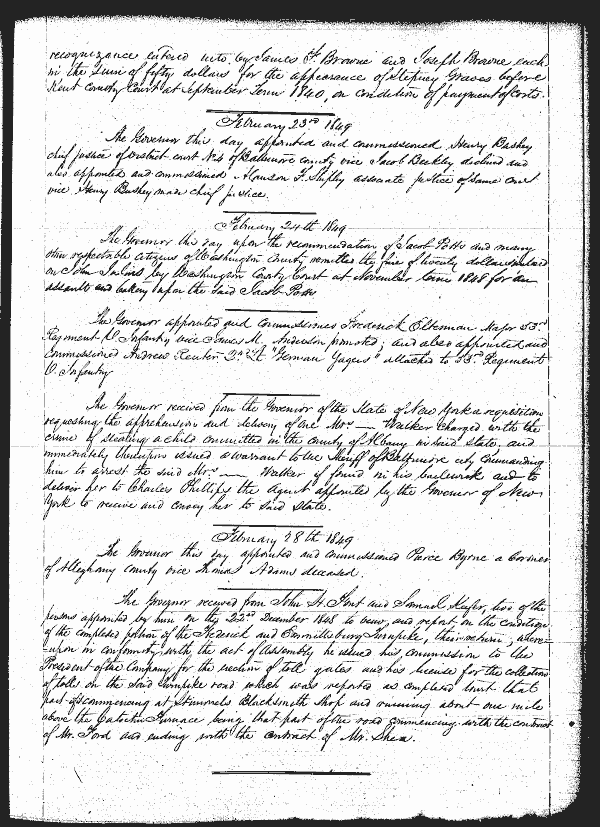 recognizance entered into by James F. Browne and Joseph Browne each
in the sum of fifty dollars for the appearance of Stepney Graves before
Kent County Court at September Term 1840, on condition of payment of costs.
February 23rd 1849
The Governor this day appointed and commissioned Henry Bushey
chief justice of District court No 4 of Baltimore county vice Jacob Beckley declined and
also appointed and commissioned F. Shipley associate justice of same court
vice Henry Bushey made chief justice.
February 24th 1849
The Governor this day upon the recommendation of Jacob Potts and many
other respectable citizens of Washington County remitted the fine of twenty dollars imposed
on John by Washington County Court at November term 1848 for an
assault and battery upon the said Jacob Potts
The Governor appointed and commissioned Frederick Major 53rd
Regiment O. Infantry vice James M. Anderson promoted; and also appointed and
commissioned Andrew 2nd Lt "German Yagers" attached to 53rd Regiment
O. Infantry
The Governor received from the Governor of the State of New York a requisition
requesting the apprehension and delivery of one Mrs — Walker charged with the
crime of stealing a child committed in the county of Albany in said state, and
immediately thereupon issued a warrant to the Sheriff of Baltimore city commanding
him to arrest the said Mrs — Walker if found in his bailiwick and to
deliver her to Charles Phillips the Agent appointed by the Governor of New
York to receive and convey her to said State.
February 28th 1849
The Governor this day appointed and commissioned Pierce Byrne a Coroner
of Alleghany county vice Thomas Adams deceased.
The Governor received from John H. and Samuel two of the
persons appointed by him on the 22nd December 1848 to view, and report on the condition
of the completed portion of the Frederick and Emmittsburg Turnpike, their return; where-
upon in conformity with the act of Assembly he issued his commission to the
President of the Company for the erection of toll gates and his license for the collection
of tolls on the said turnpike road which was reported as completed that
part commencing at Stimmels Blacksmith Shop and running about one mile
above the Catoctin Furnace being that part of the road commencing with the contract
of Mr. Ford and ending with the contract of Mr. Shea.